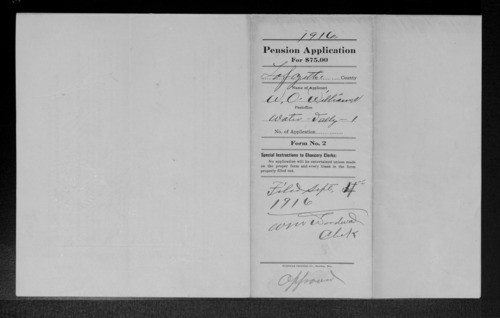 1916
Pension Application
For $75.00
Lafayette County
Name of Applicant
W. O. Williams
Postoffice
Water Vally - 1
No. of Application
Form No. 2
Special Instructions to Chancery Clerks:
No application will be entertained unless made
on the proper form and every blank in the form
properly filled out.
Filed Sept. 4
1916
Wm
Clerk
Approved